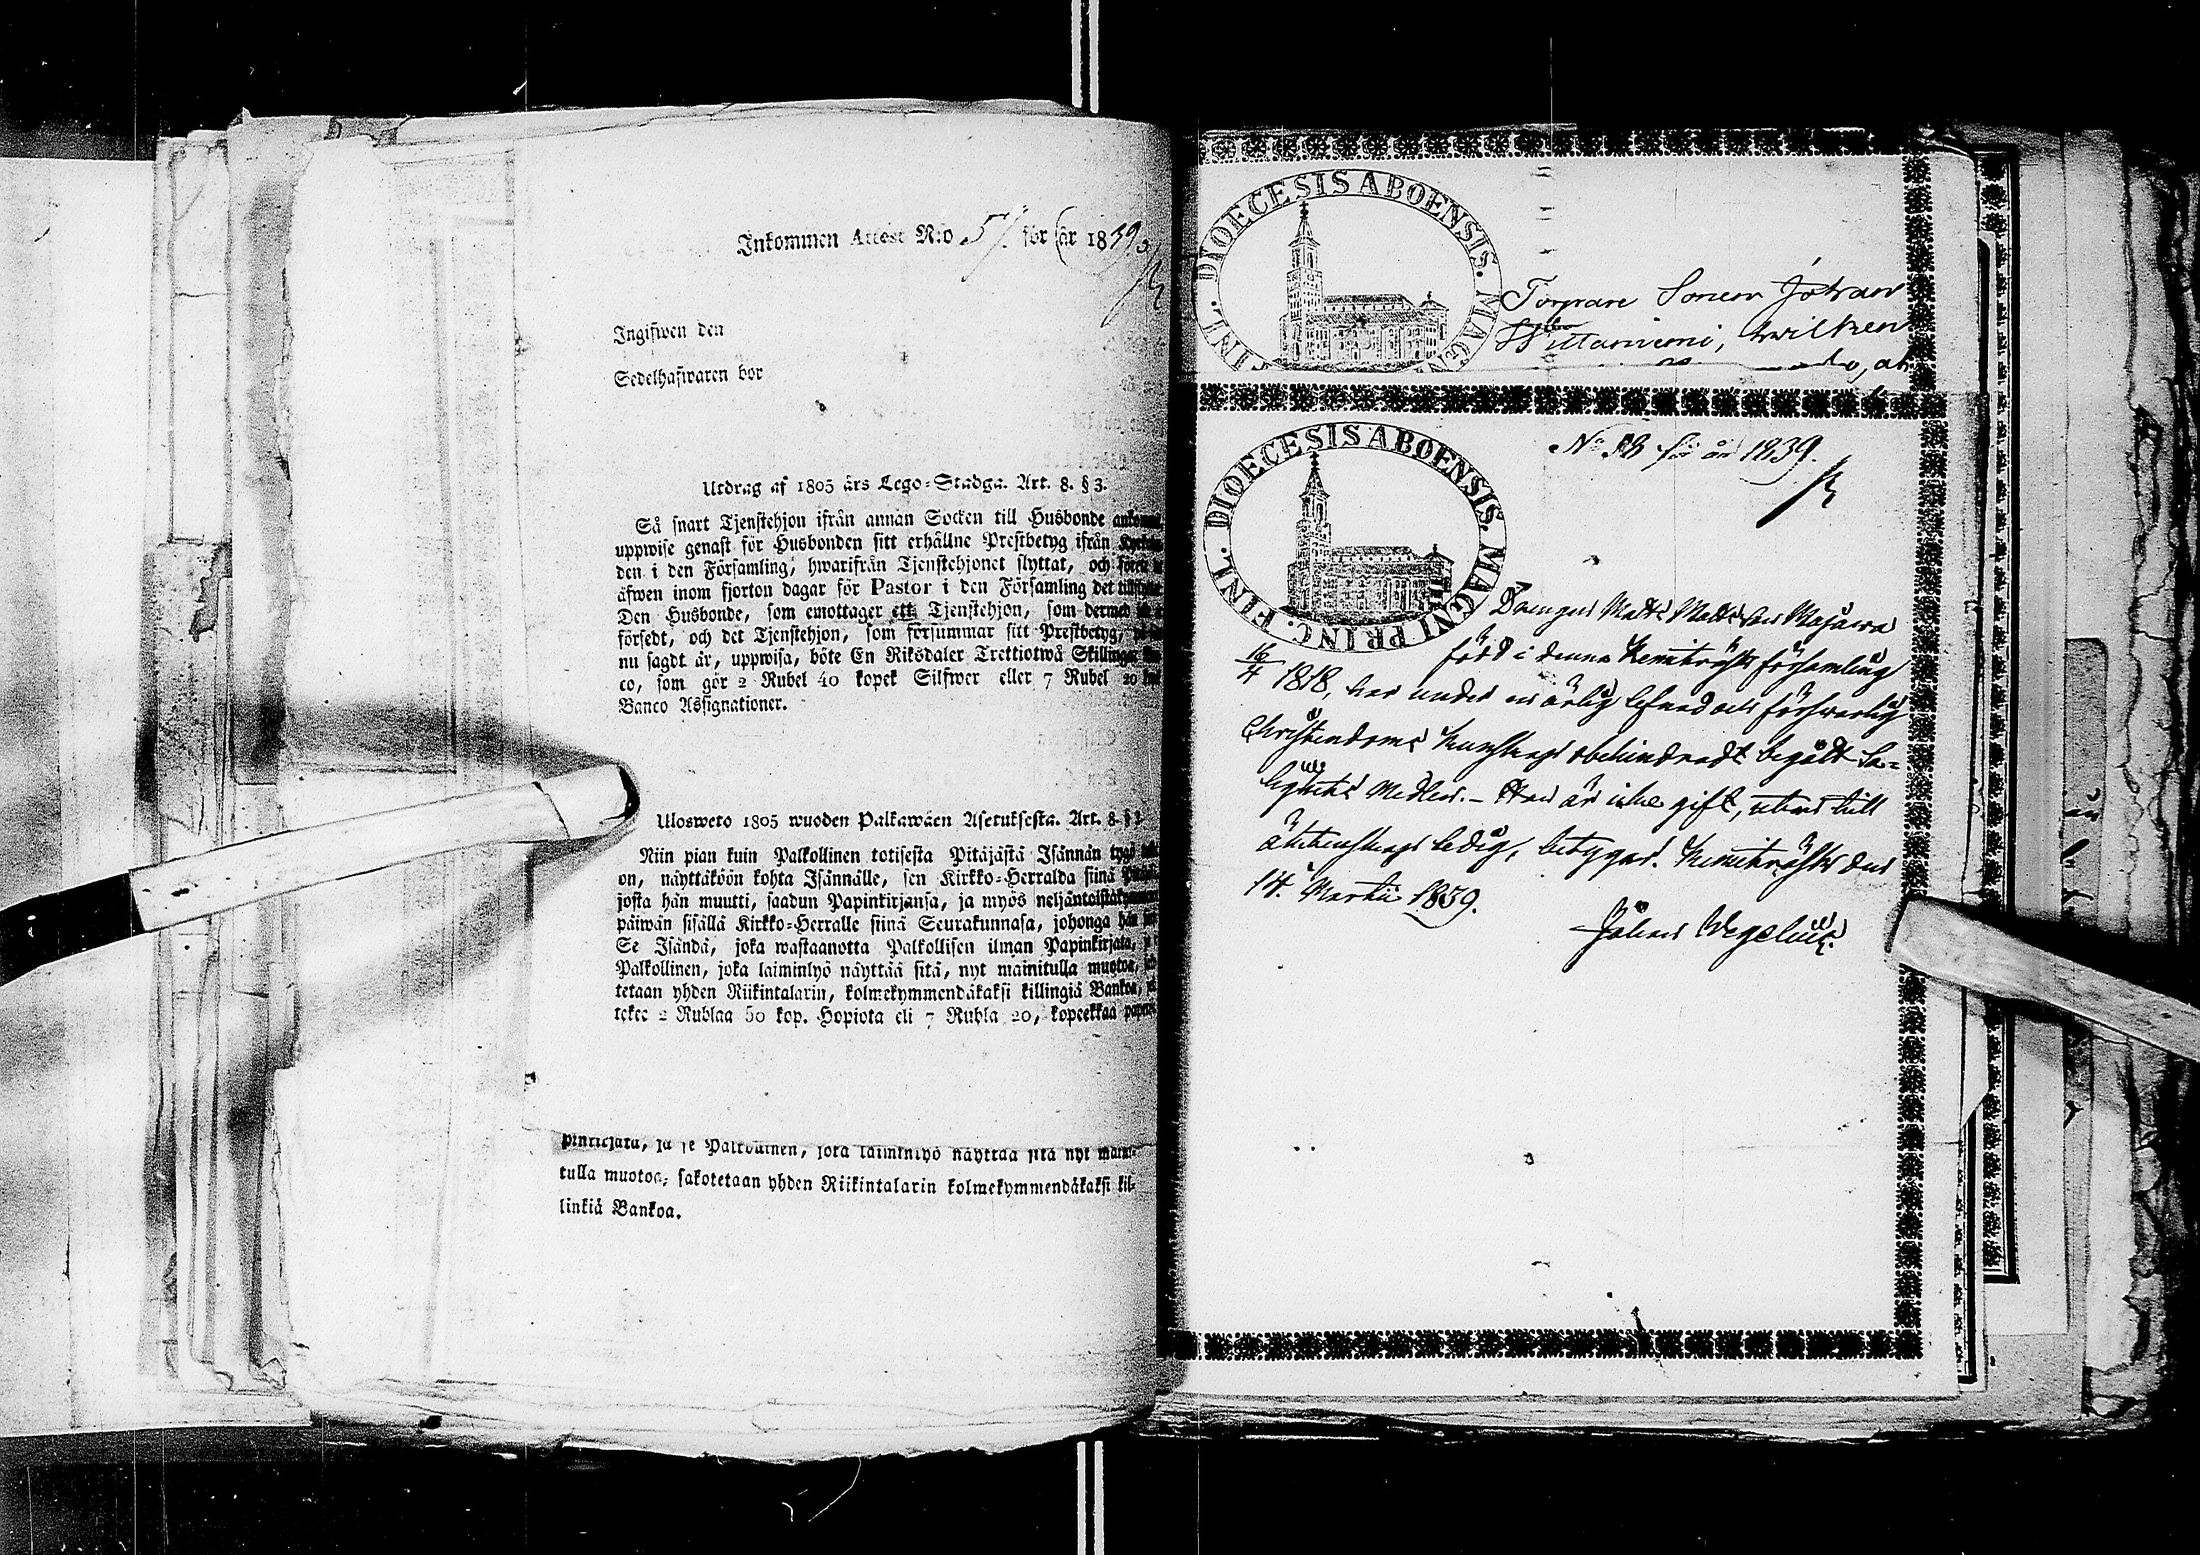 Inkommen Attest N:o 57. för år 1839.
Ingifwen den
Sedelhafwaren bor
Utdrag af 1805 års Lego-Stadga. Art. 8. § 3.
Så snart Tjenstehjon ifrån annan Socken till Husbonde
uppwise genast för Husbonden sitt erhållne Prestbetyg ifrån
den i den Församling, hwarifrån Tjenstehjonet flyttat, och
äfwen inom fjorton dagar för Pastor i den Församling det
Den Husbonde, som emottager ett Tjenstehjon, som dermed
försedt, och det Tjenstehjon, som försummar sitt Prestbetyg,
nu sagdt är, uppwisa, böte En Riksdaler Trettiotwå Skillingar
co, som gör 2 Rubel 40 kopek Silfwer eller 7 Rubel 20
Banco Assignationer.
Ulosweto 1805 wuoden Palkawäen Asetuksesta. Art. 8. § 3.
Niin pian kuin Palkollinen toisesta Pitäjästä Isännän tygö
on, näyttäköön kohta Isännälle, sen Kirkko-Herralda siinä
josta hän muutti, saadun Papinkirjansa, ja myös
päiwän sisällä Kirkko-Herralle siinä Seurakunnasa, johonga hän
Se Isändä, joka wastaanotta Palkollisen ilman Papinkirjata,
Palkollinen, joka laiminlyö näyttää sitä, nyt mainitulla muotoa,
tetaan yhden Riikintalarin, kolmekymmendäkaksi killingiä Bankoa,
tekee 2 Rublaa 50 kop. Hopiota eli 7 Rubla 20, kopeekkaa
pinkirjata, ja se Palkollinen, jota laiminlyö näyttää sitä nyt maini-
tulla muotoa, sakotetaan yhden Riikintalarin kolmekymmendäkaksi kil-
linkiä Bankoa.
DIOECESIS ABOENSIS. MAGN FINL.
Torpare Sonen Johan
hwilken
at
DIOECESIS ABOENSIS. MAGNI PRINC. FINL.
No 58 för år 1839.
Drengen Matts Mattsson Majawa
född i denna Kemiträsk församling
16/4 1818, har under en ärlig lefnad och förswarlig
Christendoms kunskap obehindradt begådt Sa-
lighetens Medlen. - Han är icke gift, utan till
äktenskap ledig, betygar. Kemiträsk den
14. Martii 1839.
Johan Wegelius.